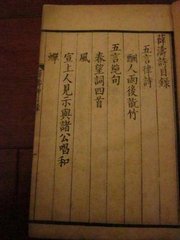 薛濤詩目錄
五言律詩
酬人雨後玩竹
五言絕句
春望詞四首
風
宣上人見示與諸公唱和
蟬